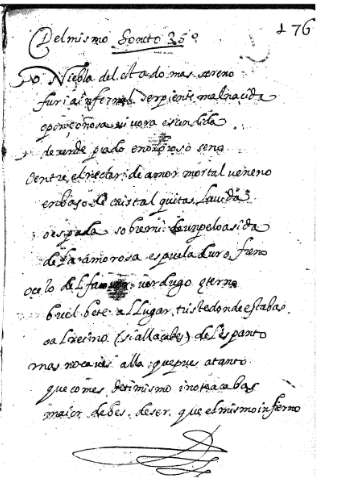 176
Del mismo Soneto 25°
O Niebla del estado mas sereno
furia infernal serpiente mal nacida
o ponçoñosa vivora escondida
de verde prado en oloroso seno
O entre el nectar de amor mortal veneno
en baso de cristal quitas la vida
o espada sobre mi de un pelo asida
de la amorosa espuela duro freno
o celo del favor verdugo eterno
buelbete al lugar triste donde estabas
o al reino (si alla cabes) del espanto
mas no alla que pues a tanto
que comes de ti mismo i no te acabas
maior debes de ser que el mismo infierno